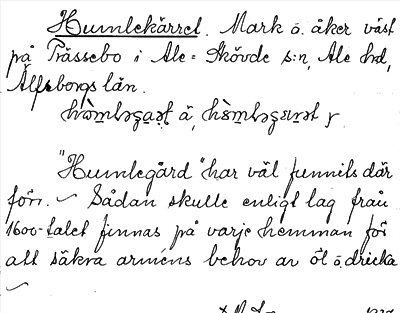 Humlekärret. Mark o. åker väst
på Trässebo i Ale-Skövde s:n, Ale hd,
Älfsborgs län.
"Humlegård" har väl funnits där
förr. Sådan skulle enligt lag från
1600-talet finnas på varje hemman för
att säkra arméns behov av öl o. dricka